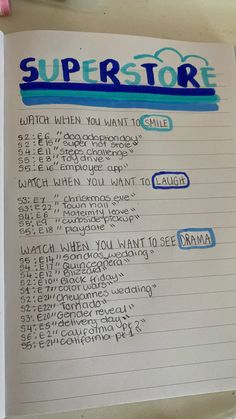 SUPERSTORE
WATCH WHEN YOU WANT TO SMILE
S2:E6 "dog adoption day"
S2:E15 "super hot store"
S4:E11 "steps challenge"
S5:E8 "Toy drive"
S5:E16 "Employee app"
WATCH WHEN YOU WANT TO LAUGH
S3:E7 "christmas eve"
S3:E22 "Town Hall"
S4:E6 "Maternity leave"
"curbside pickup"
S5:E18 "playdate"
WATCH WHEN YOU WANT TO SEE DRAMA
S5:E14 "Sandras wedding"
S4:E17 "Quinceanera"
S4:E12 "Blizzard"
S2:E10 "Black friday"
S1:E7 "color wars"
S2:E21 "cheyennes wedding"
S2:E22 "Tornado"
S3:E20 "Gender reveal"
S4:E5 "delivery day"
S6:E2 "california pt 2"
S5:E21 "california pt 1"